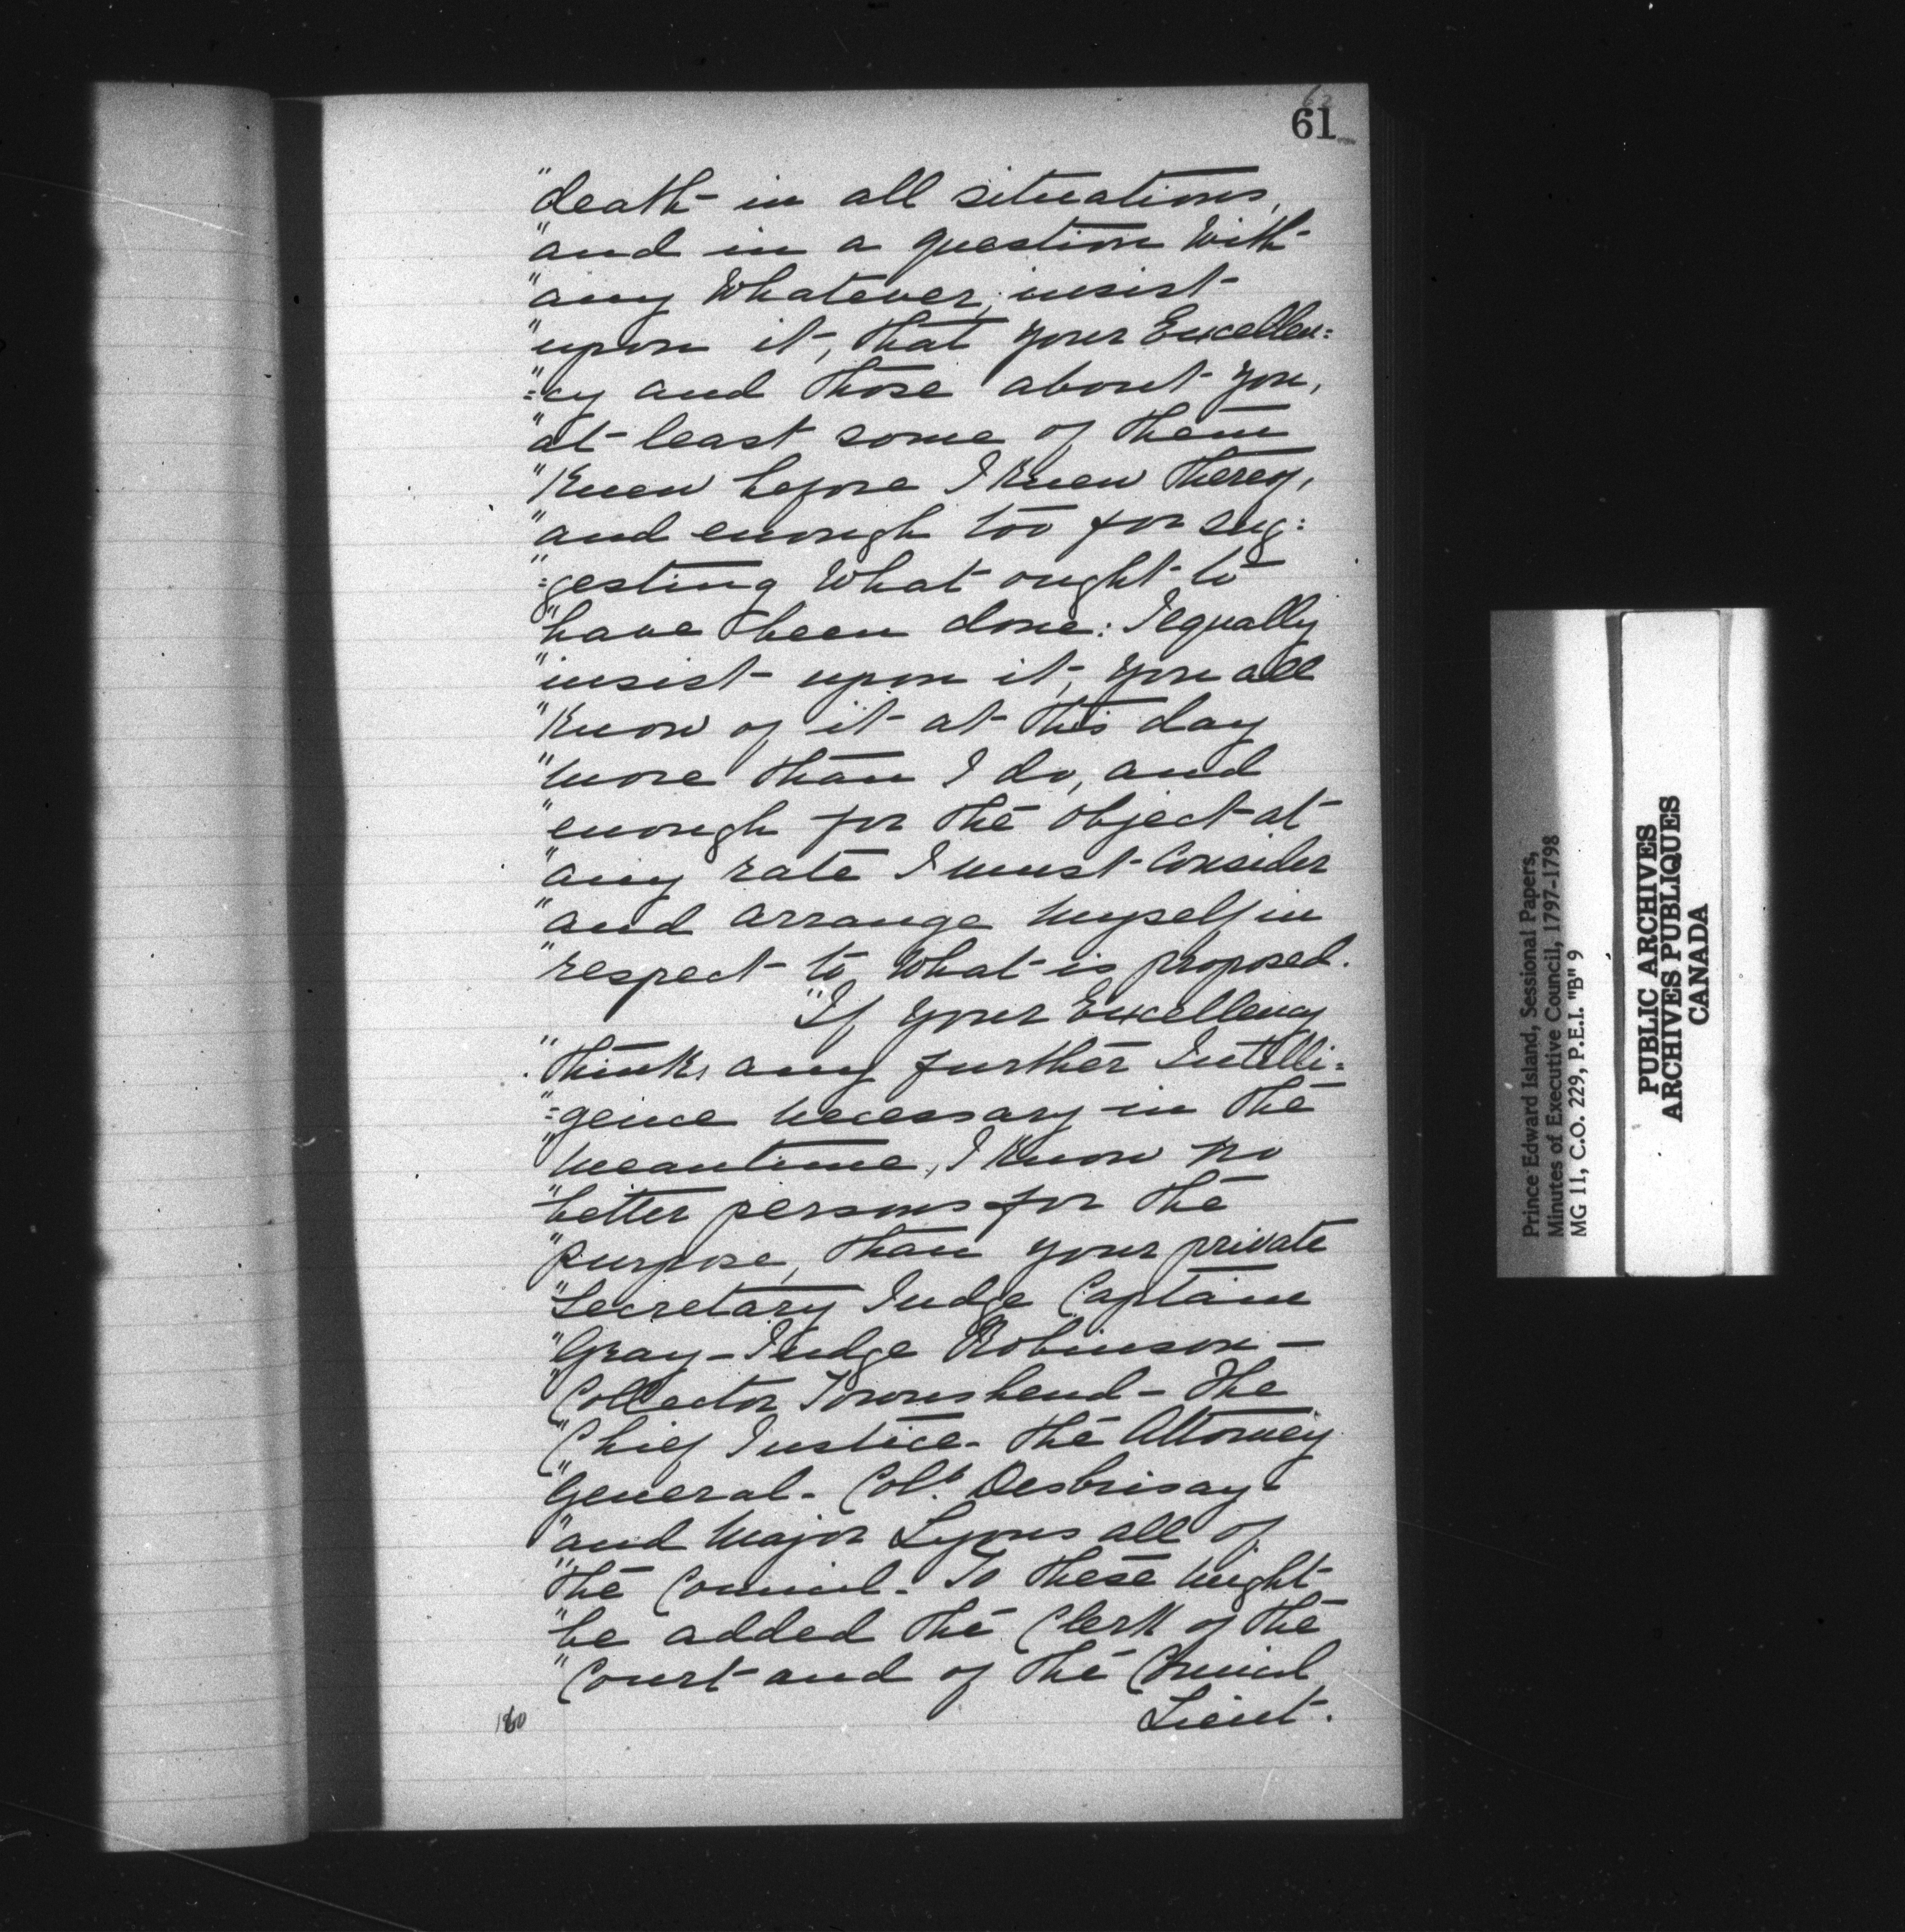 62
61
"death in all situations,
"and in a question With
"any Whatever, insist
"upon it, that your Excellen=
"=cy and those about you,
"at least some of them
"Knew before I knew thereof,
"and enough too for sug=
"=gesting What ought to
"have been done: I equally
"insist upon it, you all
"Know of it at this day
"more than I do, and
"enough for the object at
"any rate I must Consider
"and arrange myself in
"respect to What is proposed.
"If your Excellency
"thinks any further Intelli=
"=gence necessary in the
"meantime, I know no
"better persons for the
"purpose, than your private
"Secretary Judge Captain
"Gray – Judge Robinson –
"Collector Townshend – The
"Chief Justice – The Attorney
"General – Col. Desbrisay
"and Major Lyons all of
"the Council – To these might
"be added the Clerk of the
"Court and of the Council
Lieut.
Prince Edward Island, Sessional Papers,
Minutes of Executive Council, 1797-1798
MG 11, C.O. 229, P.E.I. "B" 9
PUBLIC ARCHIVES
ARCHIVES PUBLIQUES
CANADA